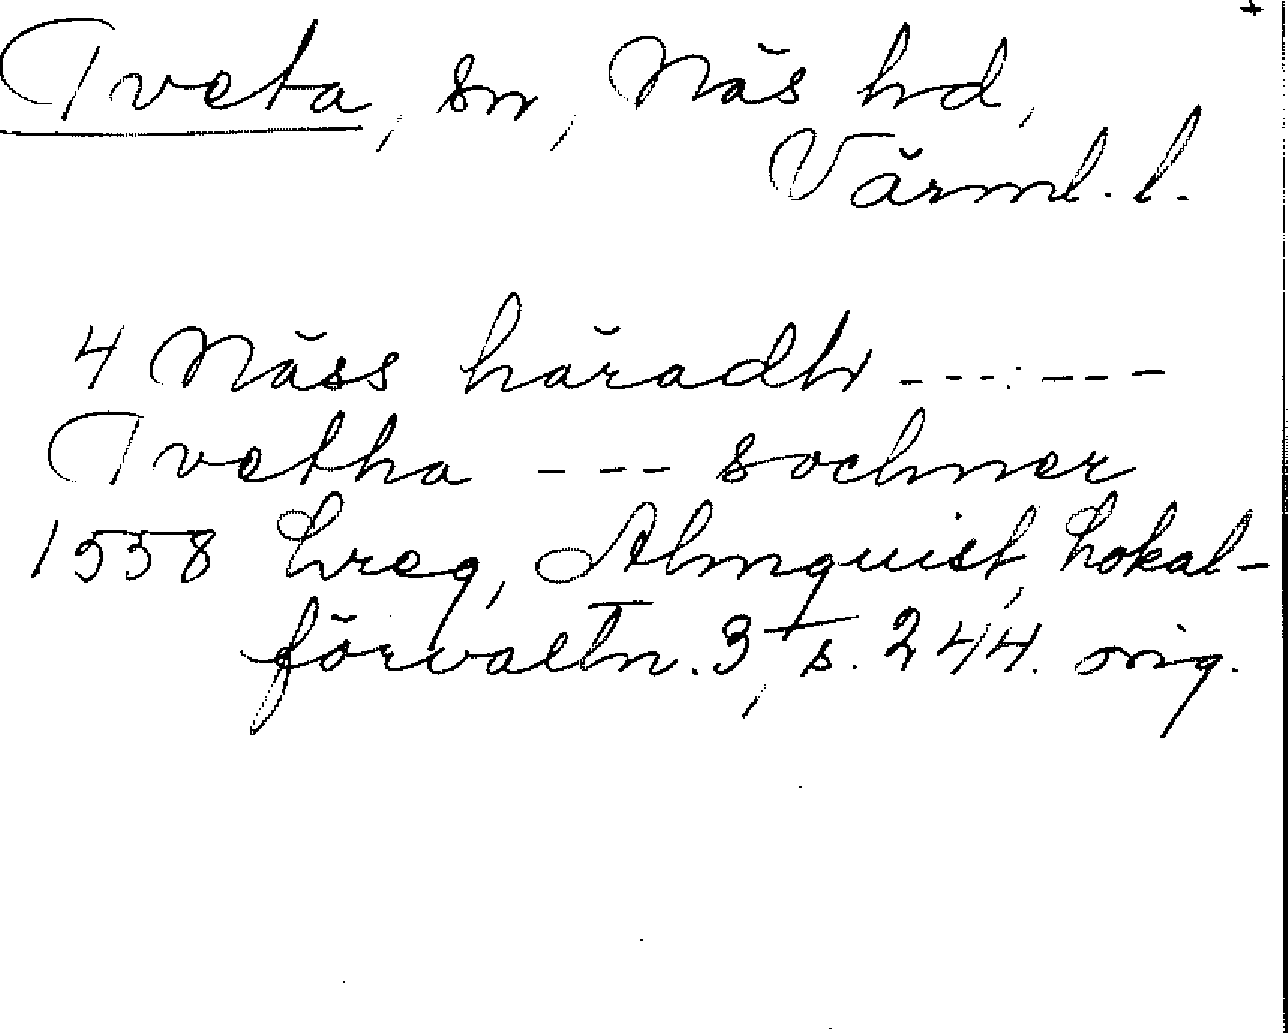 Tveta, sn, Näs hd,
Värml. l.
4 Näss häradh ---:---
Tvetha --- sochner
1558 Lreg, Almquist, Lokal-
förvaltn. 3, s. 244. orig.